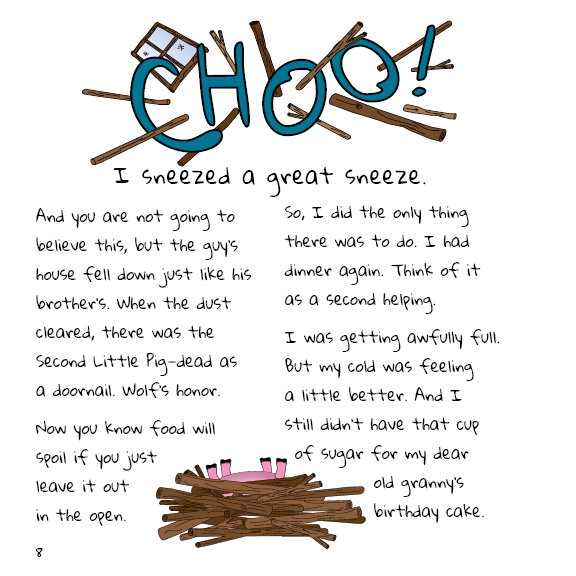 CHOO!
I sneezed a great sneeze.
And you are not going to
believe this, but the guy's
house fell down just like his
brother's. When the dust
cleared, there was the
Second Little Pig-dead as
a doornail. Wolf's honor.
Now you know food will
spoil if you just
leave it out
in the open.
So, I did the only thing
there was to do. I had
dinner again. Think of it
as a second helping.
I was getting awfully full.
But my cold was feeling
a little better. And I
still didn't have that cup
of sugar for my dear
old granny's
birthday cake.
8